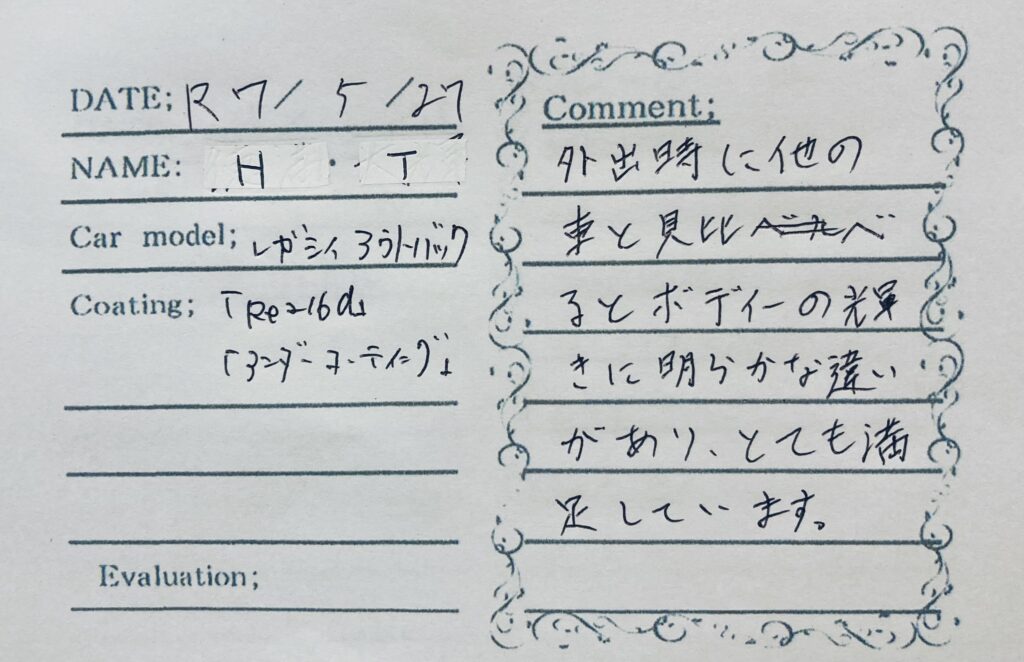 DATE; R7/5/27
NAME: H・T
Car model; レガシィ アウトバック
Coating;
「アンダーコーティング」
Evaluation;
Comment;
外出時に他の
車と見比べ
るとボディーの輝
きに明らかな違い
があり、とても満
足しています。